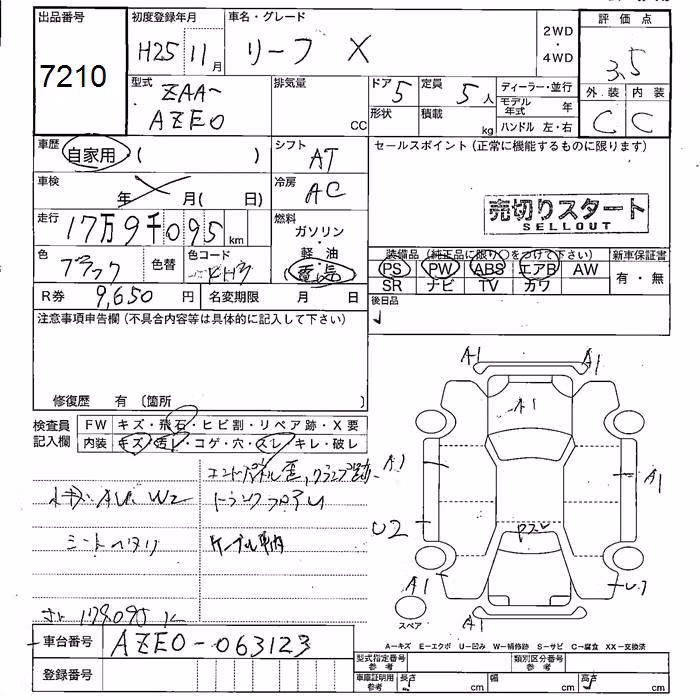 出品番号
7210
初度登録年月
H25 11月
車名・グレード
リーフ X
2WD
・
4WD
評価点
3.5
外装 内装
C C
型式
ZAA-
AZE0
排気量
CC
ドア 5
形状
定員 5人
積載 kg
ディーラー・並行
モデル年式 年
ハンドル 左・右
車歴
自家用 ( )
シフト AT
セールスポイント (正常に機能するものに限ります)
車検
年 月( 日)
冷房 AC
売切りスタート
SELLOUT
走行
17万9千095km
燃料
ガソリン
・
軽・油
色
ブラック
色替
色コード
KH3
装備品 (純正品に限り○をつけて下さい)
新車保証書
PS PW ABS エアB AW
有・無
SR ナビ TV カワ
R券 9,650円
名変期限 月 日
後日品
注意事項申告欄 (不具合内容等は具体的に記入して下さい)
修復歴 有 (箇所 )
検査員
記入欄
FW キズ・飛石・ヒビ割・リペア跡・X要
内装 キズ・汚レ・コゲ・穴・スレ・キレ・破レ
エンドパネル歪,クランプ跡
AU. W2
シートヘタリ
ケーブル車内
179095K
A1
A1
A1
A1
A1
U2
A1
A1
スペア
A－キズ E－エクボ U－凹み W－補修跡 S－サビ C－腐食 XX－交換済
車台番号 AZE0-063123
登録番号
型式指定番号
参考
類別区分番号
参考
車庫証明用
参考
長さ cm
幅 cm
高さ cm